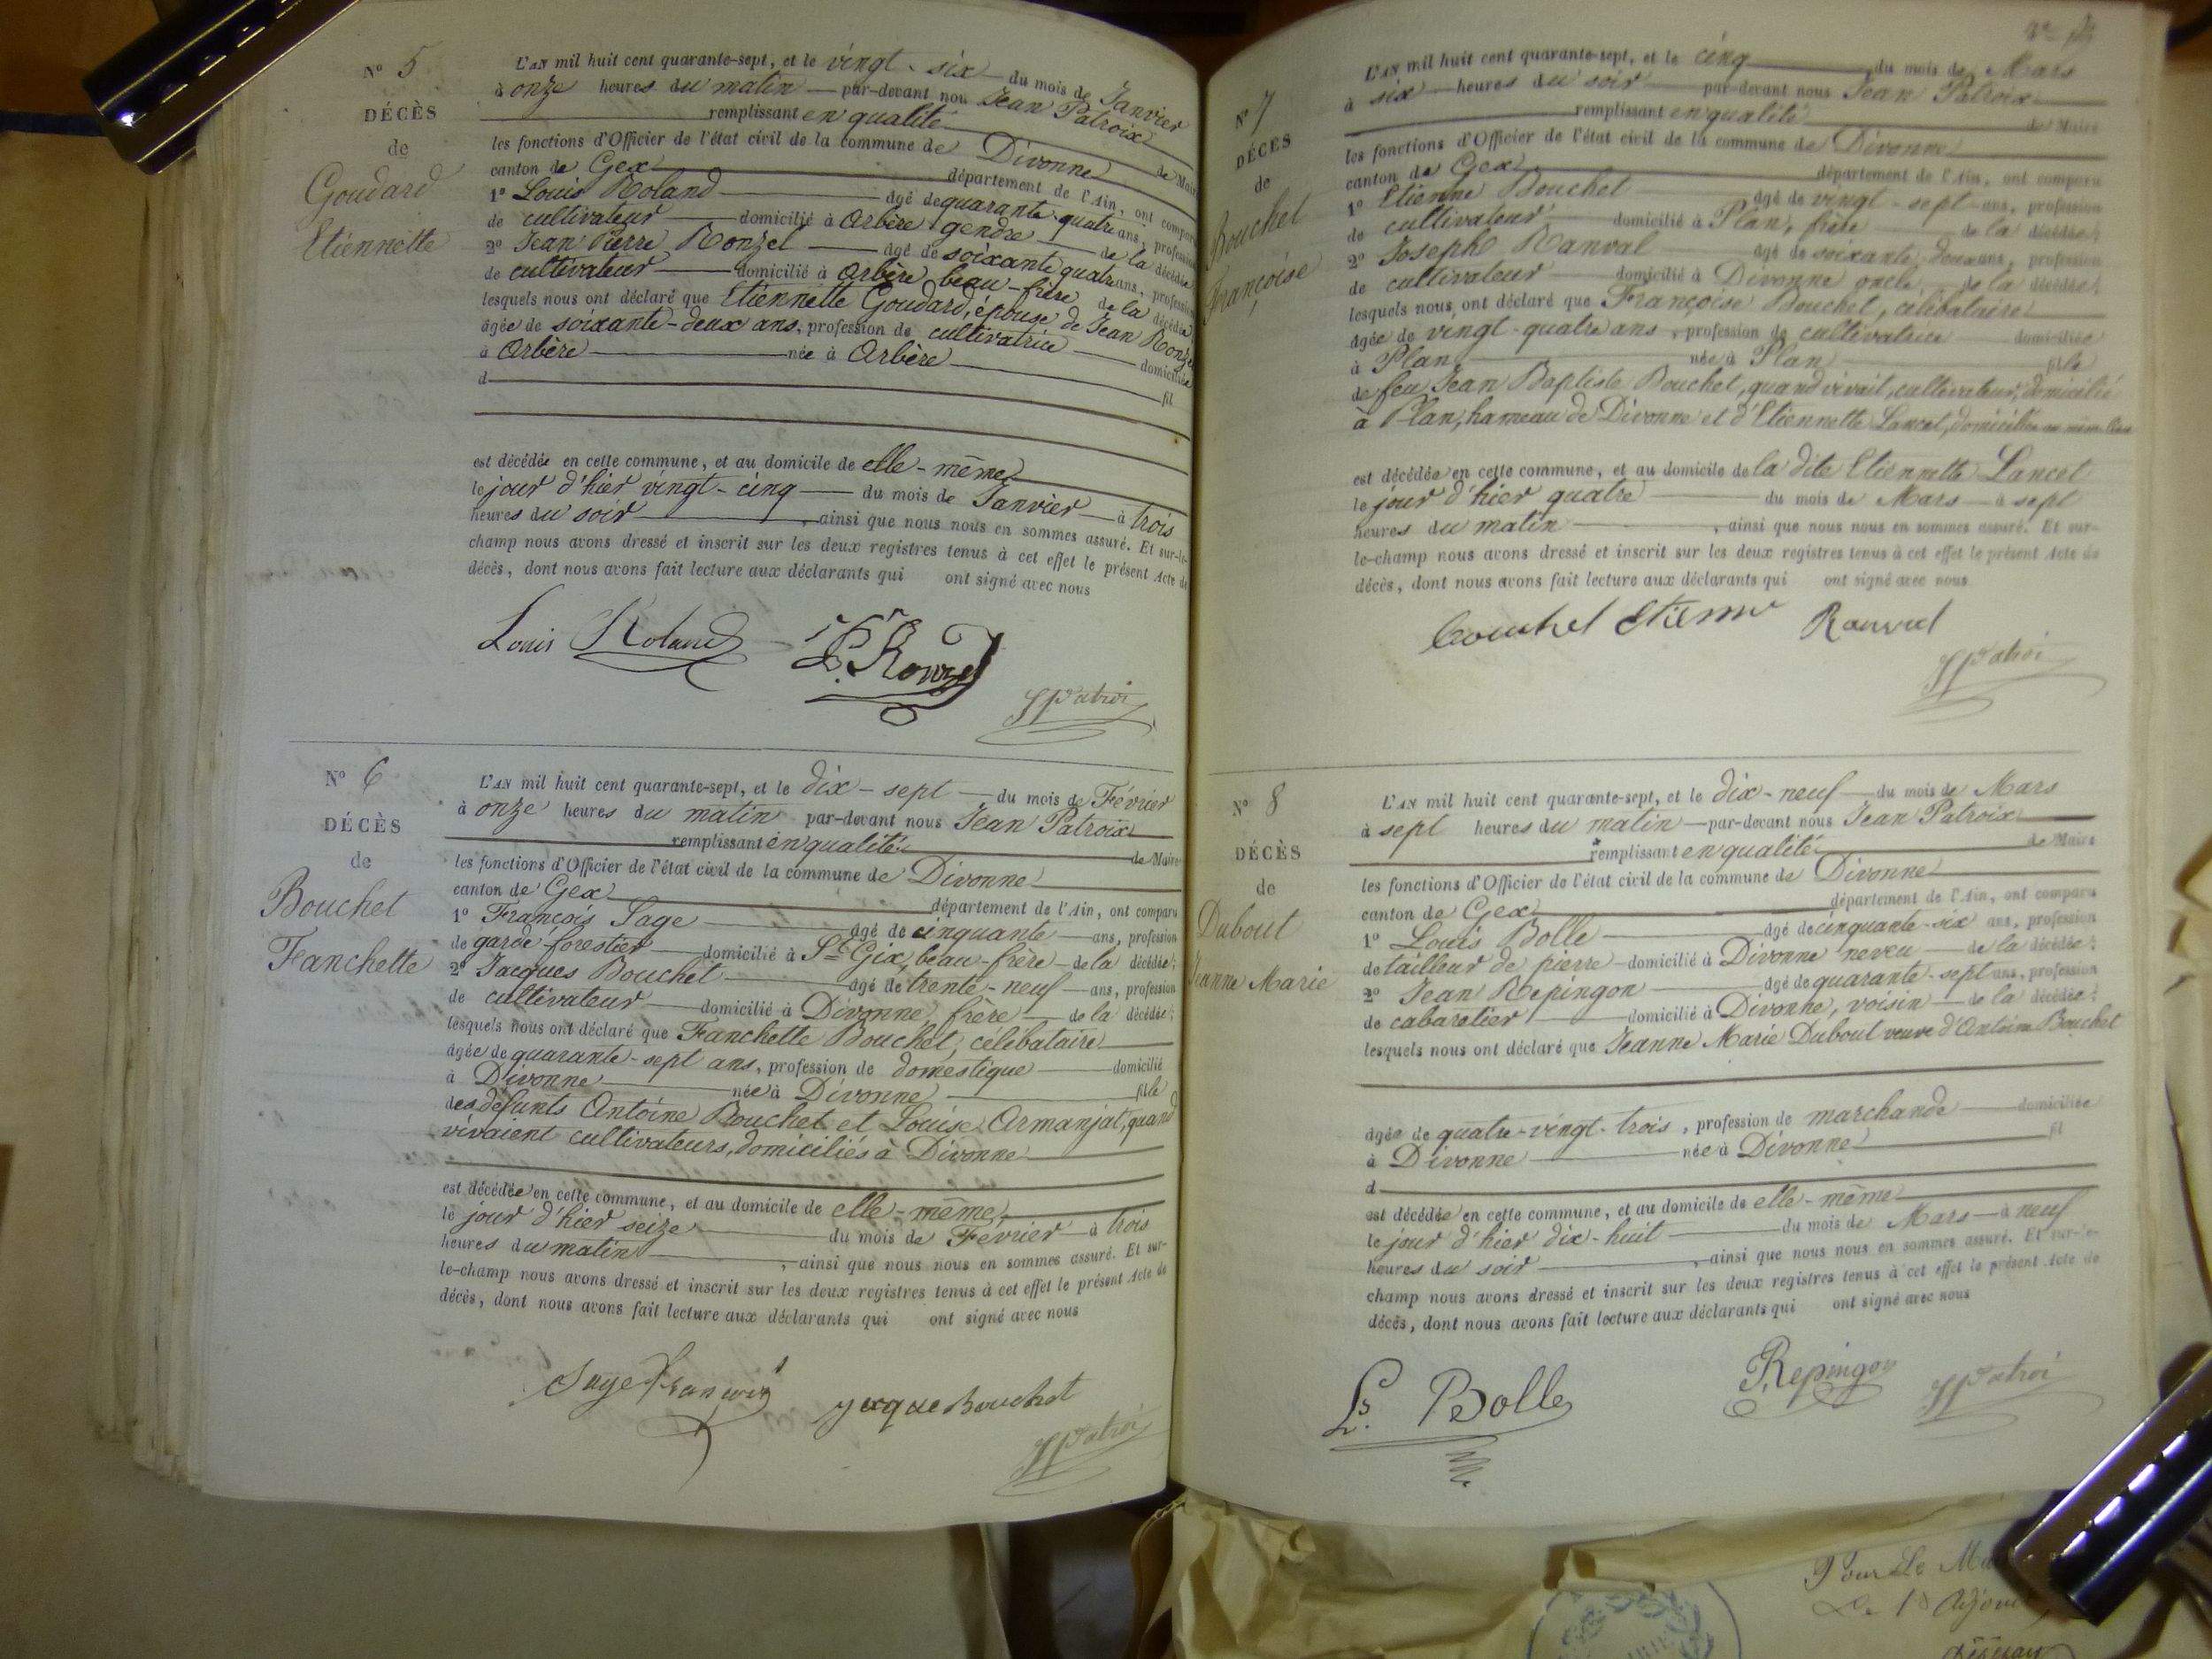 N° 5
DÉCÈS
de
Goudard
Etiennette
L'AN mil huit cent quarante-sept, et le vingt-six du mois de Janvier
à onze heures du matin par-devant nou Jean Patroix
remplissant en qualité de Maire
les fonctions d'Officier de l'état civil de la commune de Divonne
canton de Gex département de l'Ain, ont comparu
1° Louis Roland âgé de quarante quatre ans, profession
de cultivateur domicilié à Arbère gendre de la décédée
2° Jean Pierre Ronzel âgé de soixante quatre ans, profession
de cultivateur domicilié à Arbère beau-frère de la décédée
lesquels nous ont déclaré que Etiennette Goudard, épouse de Jean Ronzel
âgée de soixante-deux ans, profession de cultivatrice domiciliée
à Arbère née à Arbère fil
d
est décédée en cette commune, et au domicile de elle-même
le jour d'hier vingt-cinq du mois de Janvier à trois
heures du soir, ainsi que nous nous en sommes assuré. Et sur-le-
champ nous avons dressé et inscrit sur les deux registres tenus à cet effet le présent Acte de
décès, dont nous avons fait lecture aux déclarants qui ont signé avec nous
Louis Roland J P. Ronzel
JPatroi
N° 6
DÉCÈS
de
Bouchet
Fanchette
L'AN mil huit cent quarante-sept, et le dix-sept du mois de Février
à onze heures du matin par-devant nous Jean Patroix
remplissant en qualité de Maire
les fonctions d'Officier de l'état civil de la commune de Divonne
canton de Gex département de l'Ain, ont comparu
1° François Sage âgé de cinquante ans, profession
de garde forestier domicilié à St Gix, beau-frère de la décédée;
2° Jacques Bouchet âgé de trente-neuf ans, profession
de cultivateur domicilié à Divonne, frère de la décédée;
lesquels nous ont déclaré que Fanchette Bouchet, célébataire
âgée de quarante-sept ans, profession de domestique domicilié
à Divonne née à Divonne fille
des defunts Antoine Bouchet et Louise Armanjat, quand
vivaient cultivateurs, domiciliés à Divonne
est décédée en cette commune, et au domicile de elle-même,
le jour d'hier seize du mois de Février à trois
heures du matin, ainsi que nous nous en sommes assuré. Et sur-
le-champ nous avons dressé et inscrit sur les deux registres tenus à cet effet le présent Acte de
décès, dont nous avons fait lecture aux déclarants qui ont signé avec nous
Sage françois jacque Bouchet
JPatroi
N° 7
DÉCÈS
de
Bouchet
Françoise
L'AN mil huit cent quarante-sept, et le cinq du mois de Mars
à six heures du soir par-devant nous Jean Patroix
remplissant en qualité de Maire
les fonctions d'Officier de l'état civil de la commune de Divonne
canton de Gex département de l'Ain, ont comparu
1° Etienne Bouchet âgé de vingt-sept ans, profession
de cultivateur domicilié à Plan, frère de la décédée;
2° Joseph Ranval âgé de soixante-deux ans, profession
de cultivateur domicilié à Divonne oncle de la décédée;
lesquels nous ont déclaré que Françoise Bouchet, célébataire
âgée de vingt-quatre ans, profession de cultivatrice domiciliée
à Plan née à Plan fille
de feu Jean Baptiste Bouchet, quand vivait, cultivateur, domicilié
à Plan, hameau de Divonne et d'Etiennette Lancet, domiciliée au même lieu
est décédée en cette commune, et au domicile de la dite Etiennette Lancet
le jour d'hier quatre du mois de Mars à sept
heures du matin, ainsi que nous nous en sommes assuré. Et sur-
le-champ nous avons dressé et inscrit sur les deux registres tenus à cet effet le présent Acte de
décès, dont nous avons fait lecture aux déclarants qui ont signé avec nous
Bouchet Etienne Ranval
JPatroi
N° 8
DÉCÈS
de
Dubout
Jeanne Marie
L'AN mil huit cent quarante-sept, et le dix-neuf du mois de Mars
à sept heures du matin par-devant nous Jean Patroix
remplissant en qualité de Maire
les fonctions d'Officier de l'état civil de la commune de Divonne
canton de Gex département de l'Ain, ont comparu
1° Louis Bolle âgé de cinquante-six ans, profession
de tailleur de pierre domicilié à Divonne neveu de la décédée;
2° Jean Repingon âgé de quarante-sept ans, profession
de cabaretier domicilié à Divonne, voisin de la décédée;
lesquels nous ont déclaré que Jeanne Marie Dubout veuve d'Antoine Bouchet
âgée de quatre-vingt-trois, profession de marchande domiciliée
à Divonne née à Divonne fil
d
est décédée en cette commune, et au domicile de elle-même
le jour d'hier dix-huit du mois de Mars à neuf
heures du soir, ainsi que nous nous en sommes assuré. Et sur-le-
champ nous avons dressé et inscrit sur les deux registres tenus à cet effet le présent Acte de
décès, dont nous avons fait lecture aux déclarants qui ont signé avec nous
Ls. Bolle Repingon JPatroi
Pour Le